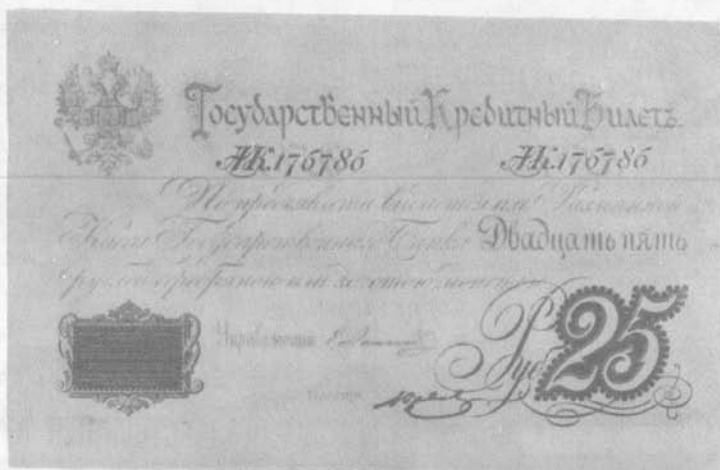 Государственный Кредитный Билетъ.
АК.176786 АК.176786
По предъявленiи выдается изъ Размѣнной
Кассы Государственнаго Банка Двадцать пять
рублей серебряною или золотою монетою.
Управляющiй
Кассиръ
Руб. 25